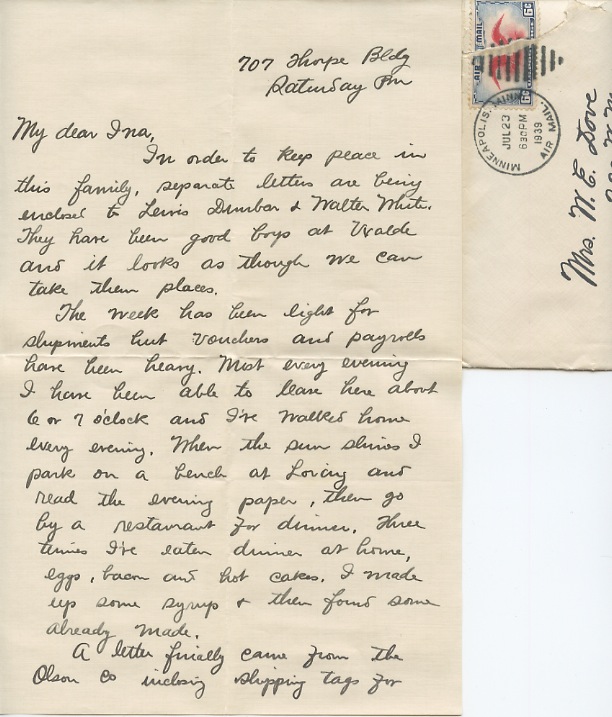 707 Thorpe Bldg
Saturday Pm
My dear Ina,
In order to keep peace in
this family, separate letters are being
enclosed to Lewis Dunbar & Walter White.
They have been good boys at Uvalde
and it looks as though we can
take them places.
The week has been light for
shipments but vouchers and payrolls
have been heavy. Most every evening
I have been able to leave here about
6 or 7 o'clock and I've walked home
every evening. When the sun shines I
park on a bench at Loring and
read the evening paper, then go
by a restaurant for dinner. Three
times I've eaten dinner at home,
eggs, bacon and hot cakes. I made
up some syrup & then found some
already made.
A letter finally came from the
Olson Co inclosing shipping tags for
AIR MAIL
6¢
6¢
MINNEAPOLIS, MINN.
JUL 23
630 PM
1939
AIR MAIL.
Mrs. W. E. Dove